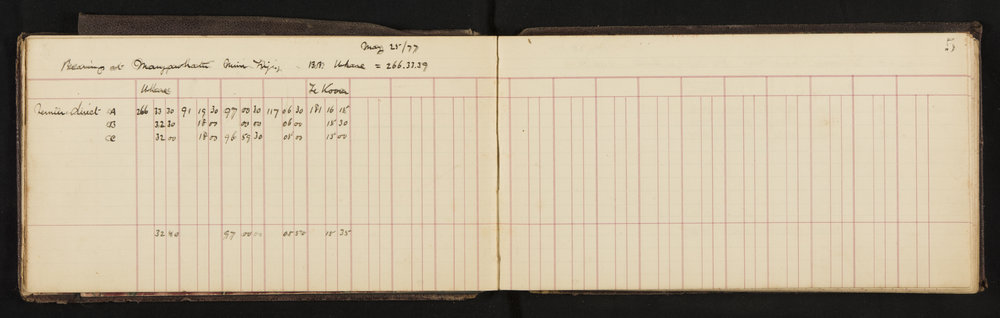 May 25/77
5
Bearings at Mangawhati Main Trig, BM Whare = 266.33.39
Whare Te Koora
Vernier direct A 266 33 30 91 19 30 97 00 30 117 06 30 181 16 15
B 32 30 18 00 00 00 06 00 15 30
C 32 00 18 00 96 59 30 05 00 15 00
32 40 97 00 00 05 50 15 35